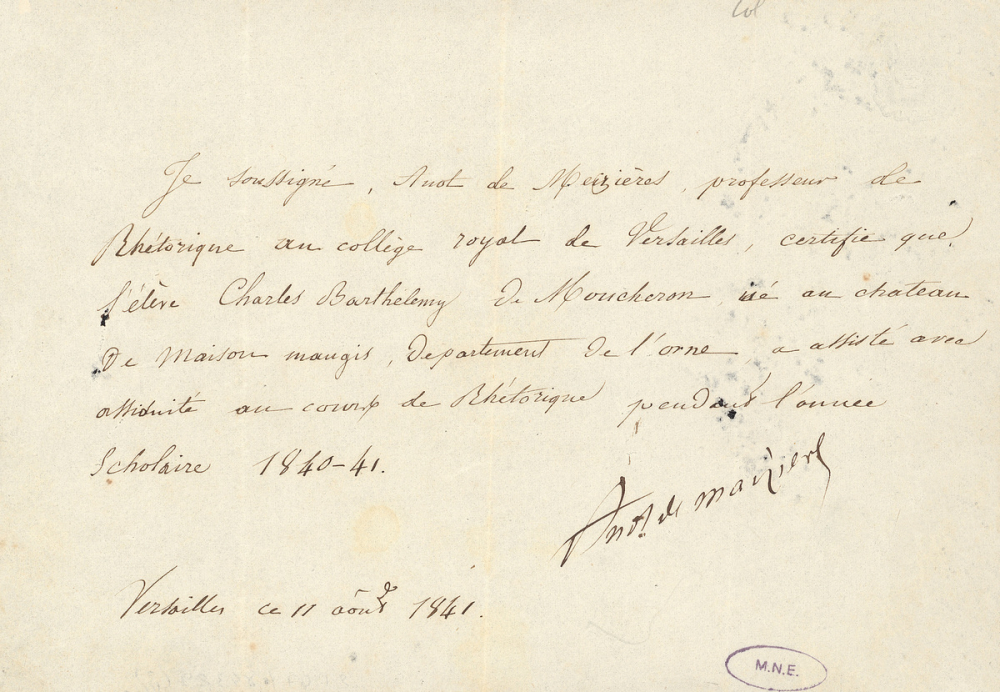 Col
Je soussigné, Anot de Meizières, professeur de
Rhétorique au collège royal de Versailles, certifie que
l'élève Charles Barthelemy De Moucheron né au chateau
De maison maugis, département de l'orne a assisté avec
assiduité au cours de Rhétorique pendant l'année
Scholaire 1840-41.
Anot de maizieres
Versailles ce 11 août 1841.
M.N.E.